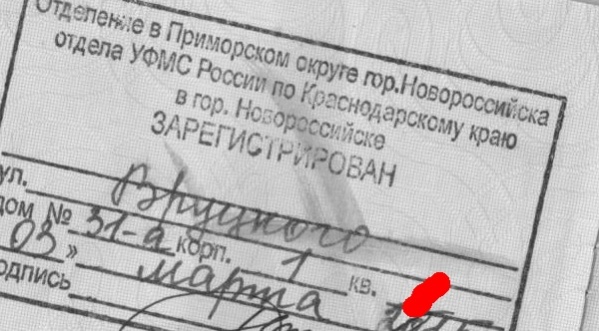 Отделение в Приморском округе гор.Новороссийска
отдела УФМС России по Краснодарскому краю
в гор. Новороссийске
ЗАРЕГИСТРИРОВАН
ул. Вруцкого
дом № 31-а корп. 1 кв.
03 » марта
подпись